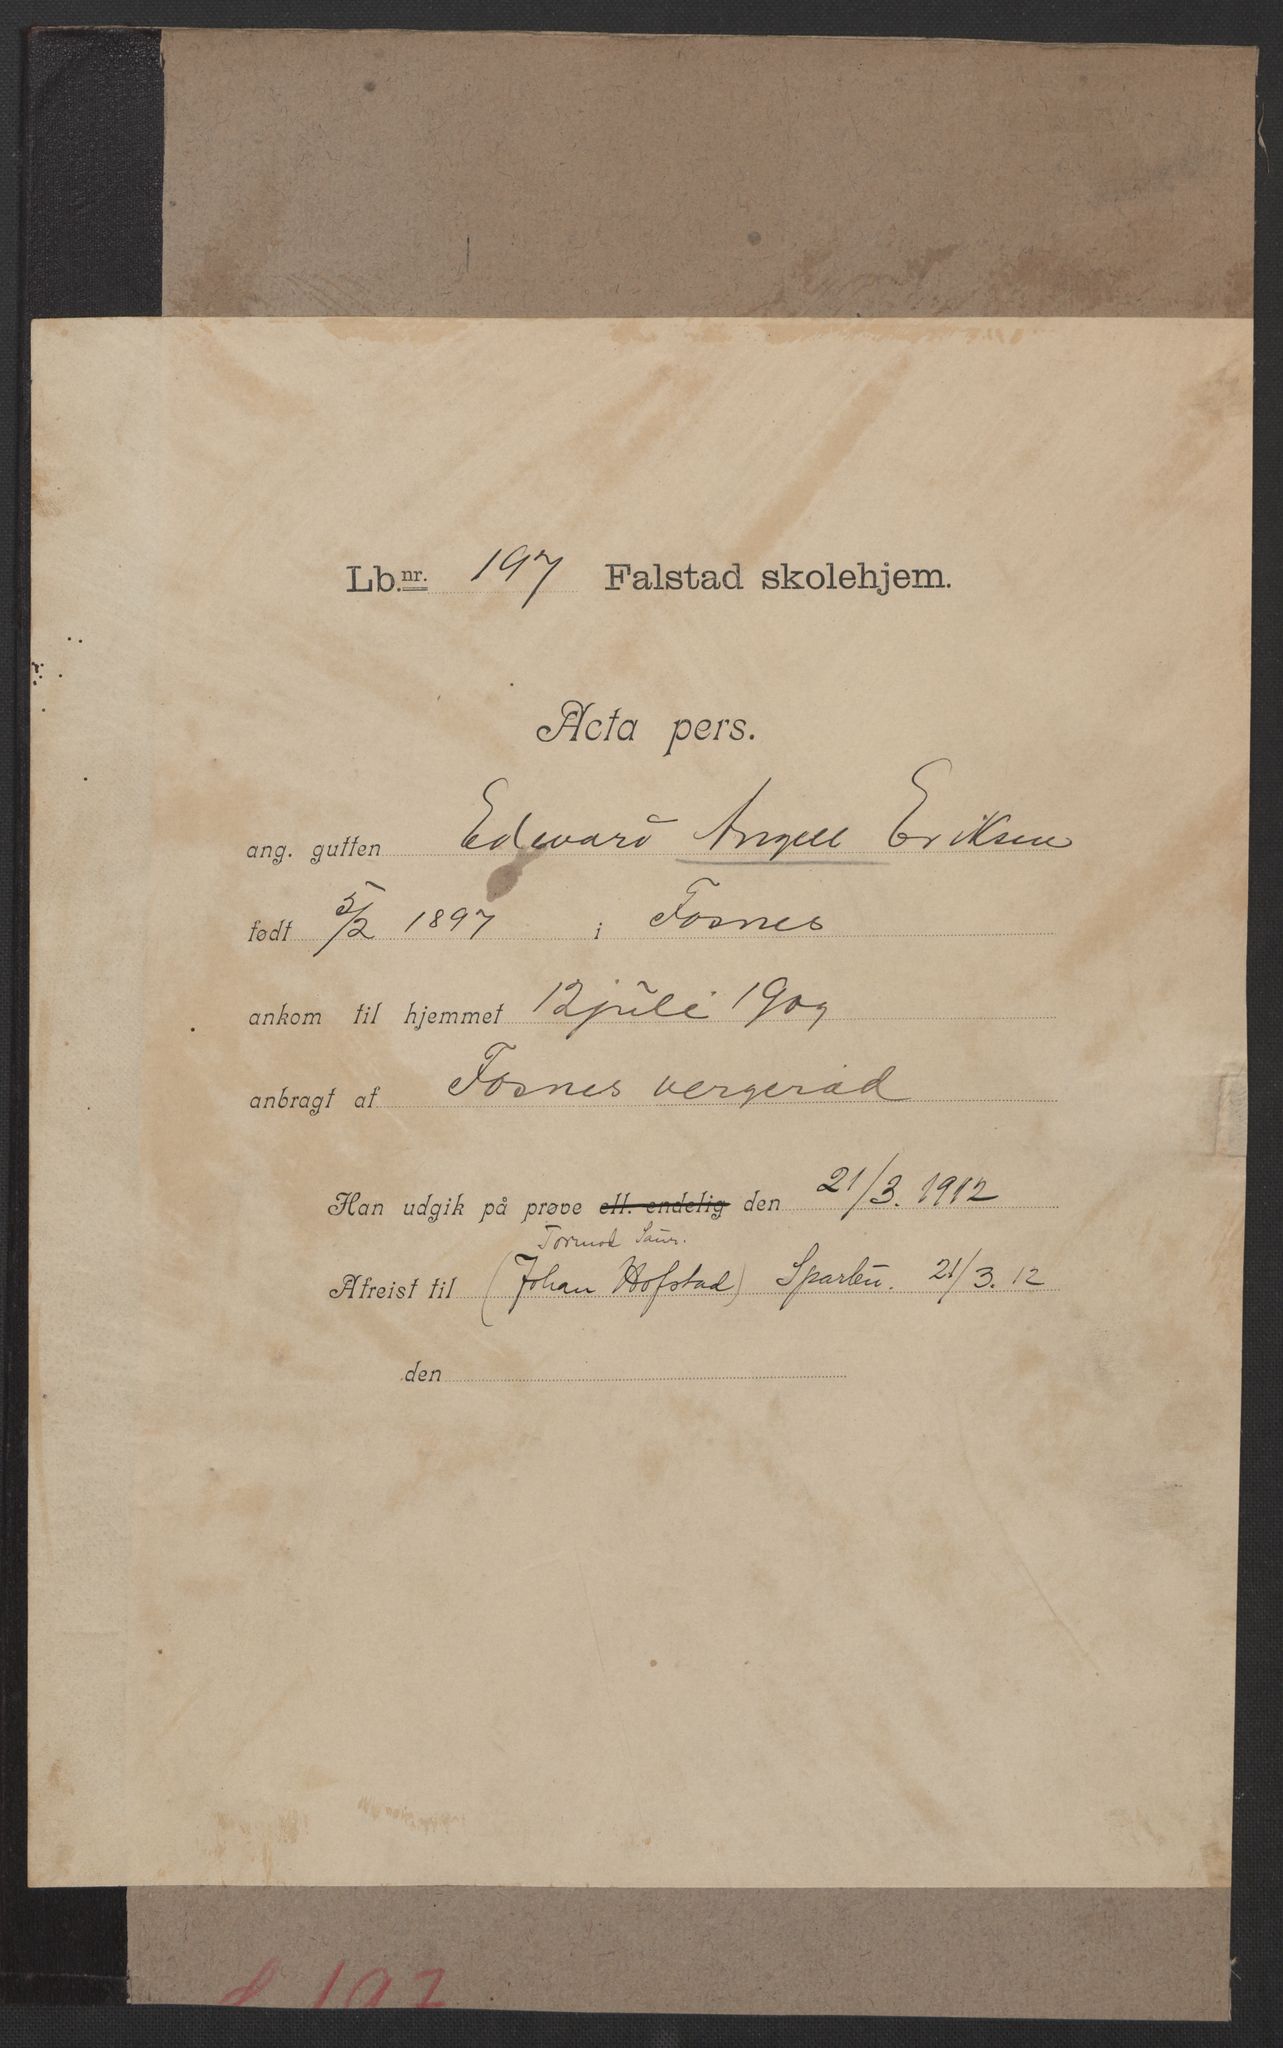 Lb.nr. 197 Falstad skolehjem.
Acta pers.
ang. gutten Edward Angell Eriksen
født 5/2 1897 i Fosnes
ankom til hjemmet 12 juli 1909
anbragt af Fosnes vergeråd
Han udgik på prøve ell. endelig den 21/3. 1912
Tormod Saur.
Afreist til (Johan Hofstad) Sparbu. 21/3. 12
den
197